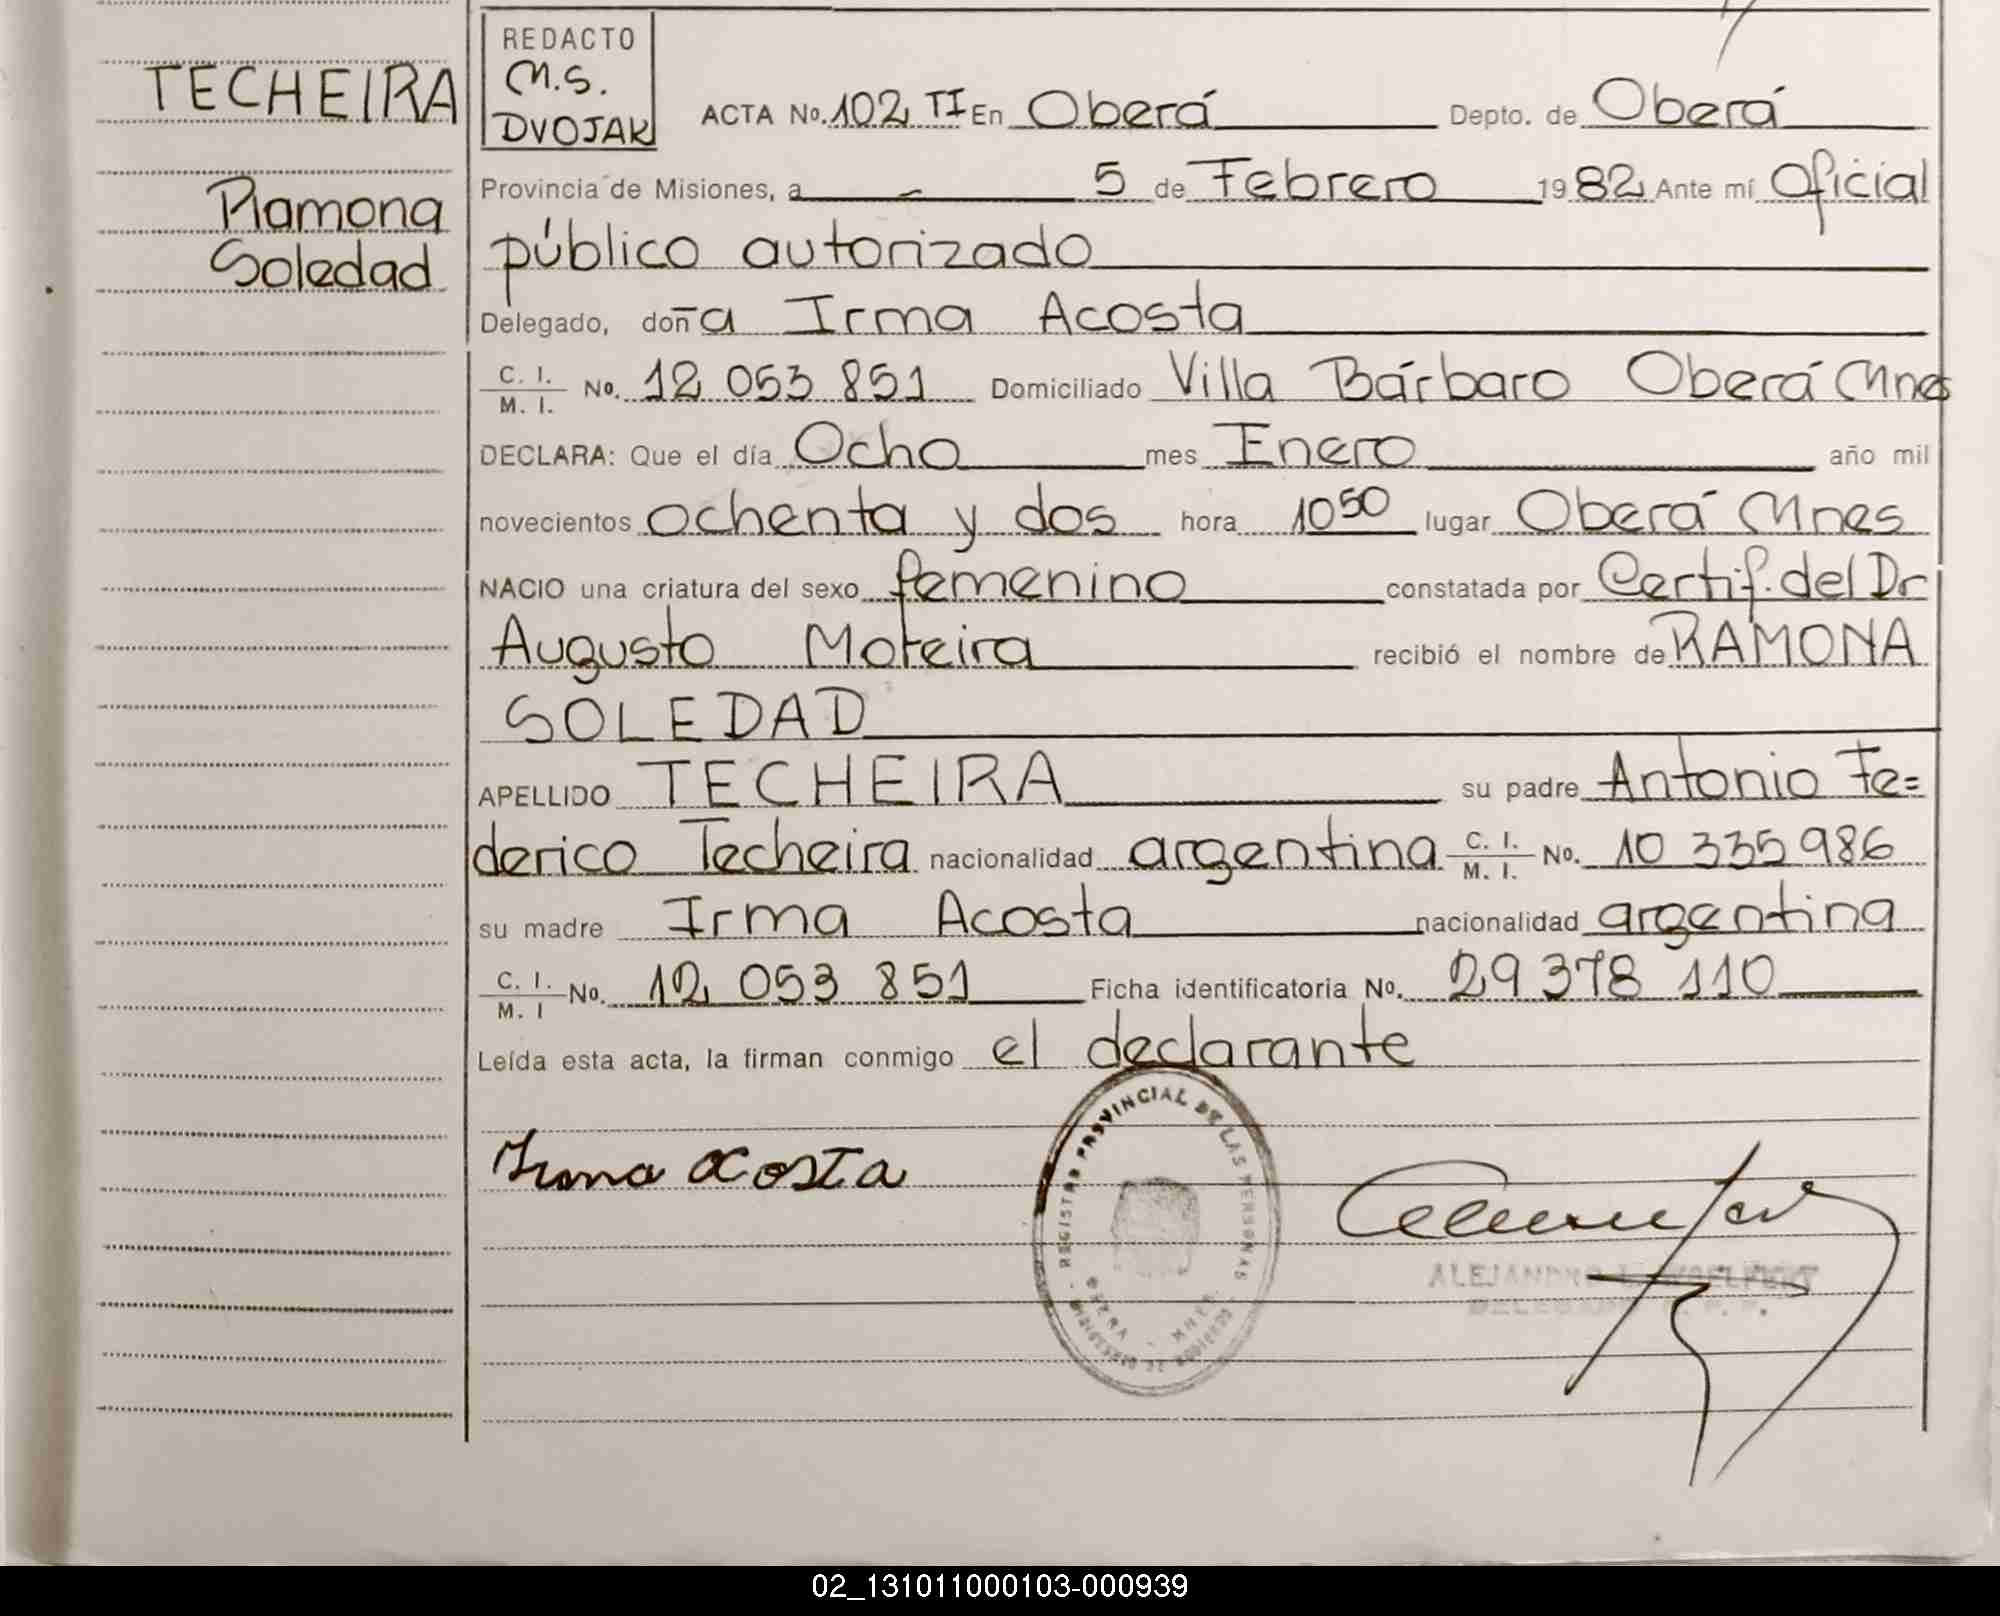 TECHEIRA
Ramona
Soledad
REDACTO
M.S.
DVOJAK
ACTA No. 102 TI En Oberá Depto. de Oberá
Provincia de Misiones, a 5 de Febrero 1982 Ante mí Oficial
público autorizado
Delegado, doña Irma Acosta
C. I. / M. I. No. 12 053 851 Domiciliado Villa Bárbaro Oberá Mnes
DECLARA: Que el día Ocho mes Enero año mil
novecientos ochenta y dos hora 10 50 lugar Oberá Mnes
NACIO una criatura del sexo femenino constatada por Certif. del Dr
Augusto recibió el nombre de RAMONA
SOLEDAD
APELLIDO TECHEIRA su padre Antonio Fe=
derico Techeira nacionalidad argentina C. I. / M. I. No. 10 335 986
su madre Irma Acosta nacionalidad argentina
C. I. / M. I No. 12 053 851 Ficha identificatoria No. 29 378 110
Leída esta acta, la firman conmigo el declarante
Irma acosta
REGISTRO PROVINCIAL DE LAS PERSONAS
OBERA - MNES.
MINISTERIO DE GOBIERNO
ALEJANDRO
DELEGADO R. P. P.
02_131011000103-000939